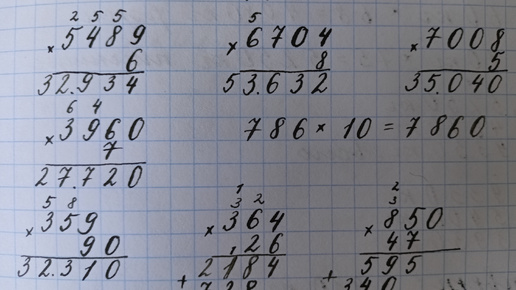 2 5 5
× 5489
6
32.934
5
× 6704
8
53.632
× 7008
5
35.040
6 4
× 3960
7
27.720
786 × 10 = 7860
5 8
× 359
90
32.310
1
3 2
× 364
26
2184
+
2
3
× 850
47
595
+ 340